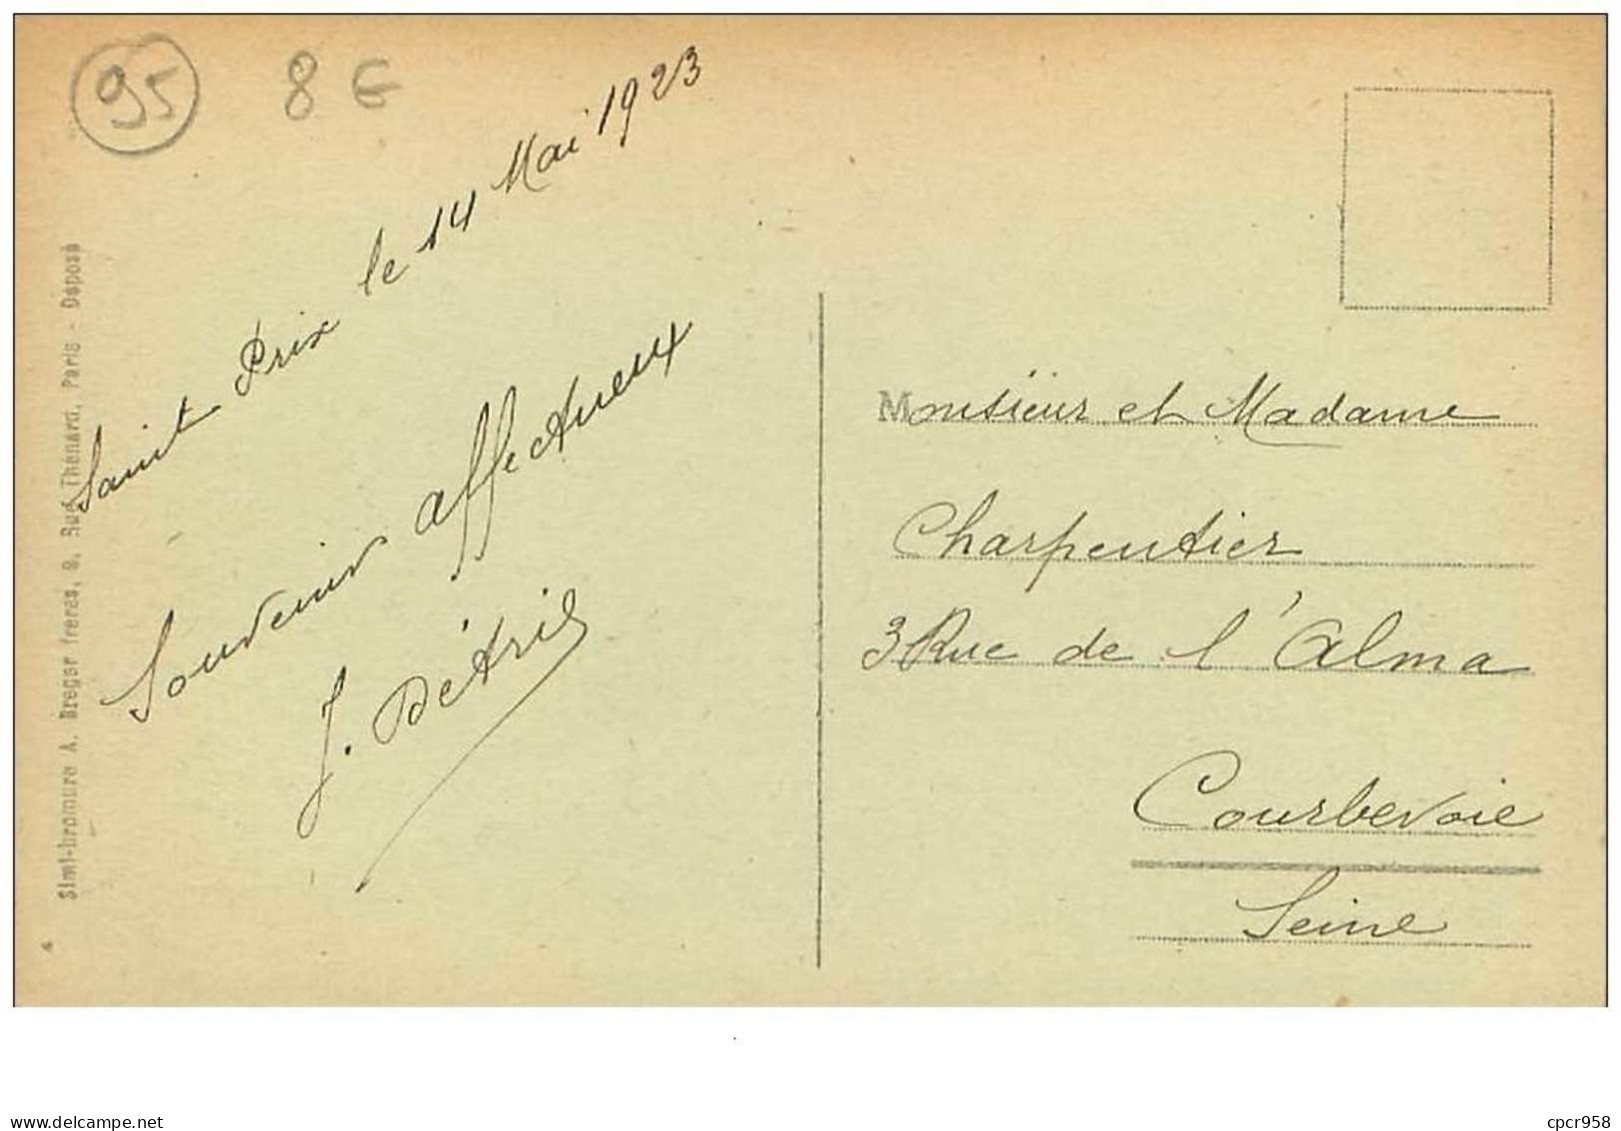 95
8 €
Saint Prix le 14 Mai 1923
Souvenir affectueux
J. Détrie
Simi-bromure A. Breger frères, 9, Rue Thénard, Paris - Déposé
Monsieur et Madame
Charpentier
3 Rue de l'Alma
Courbevoie
Seine
www.delcampe.net
cpcr958